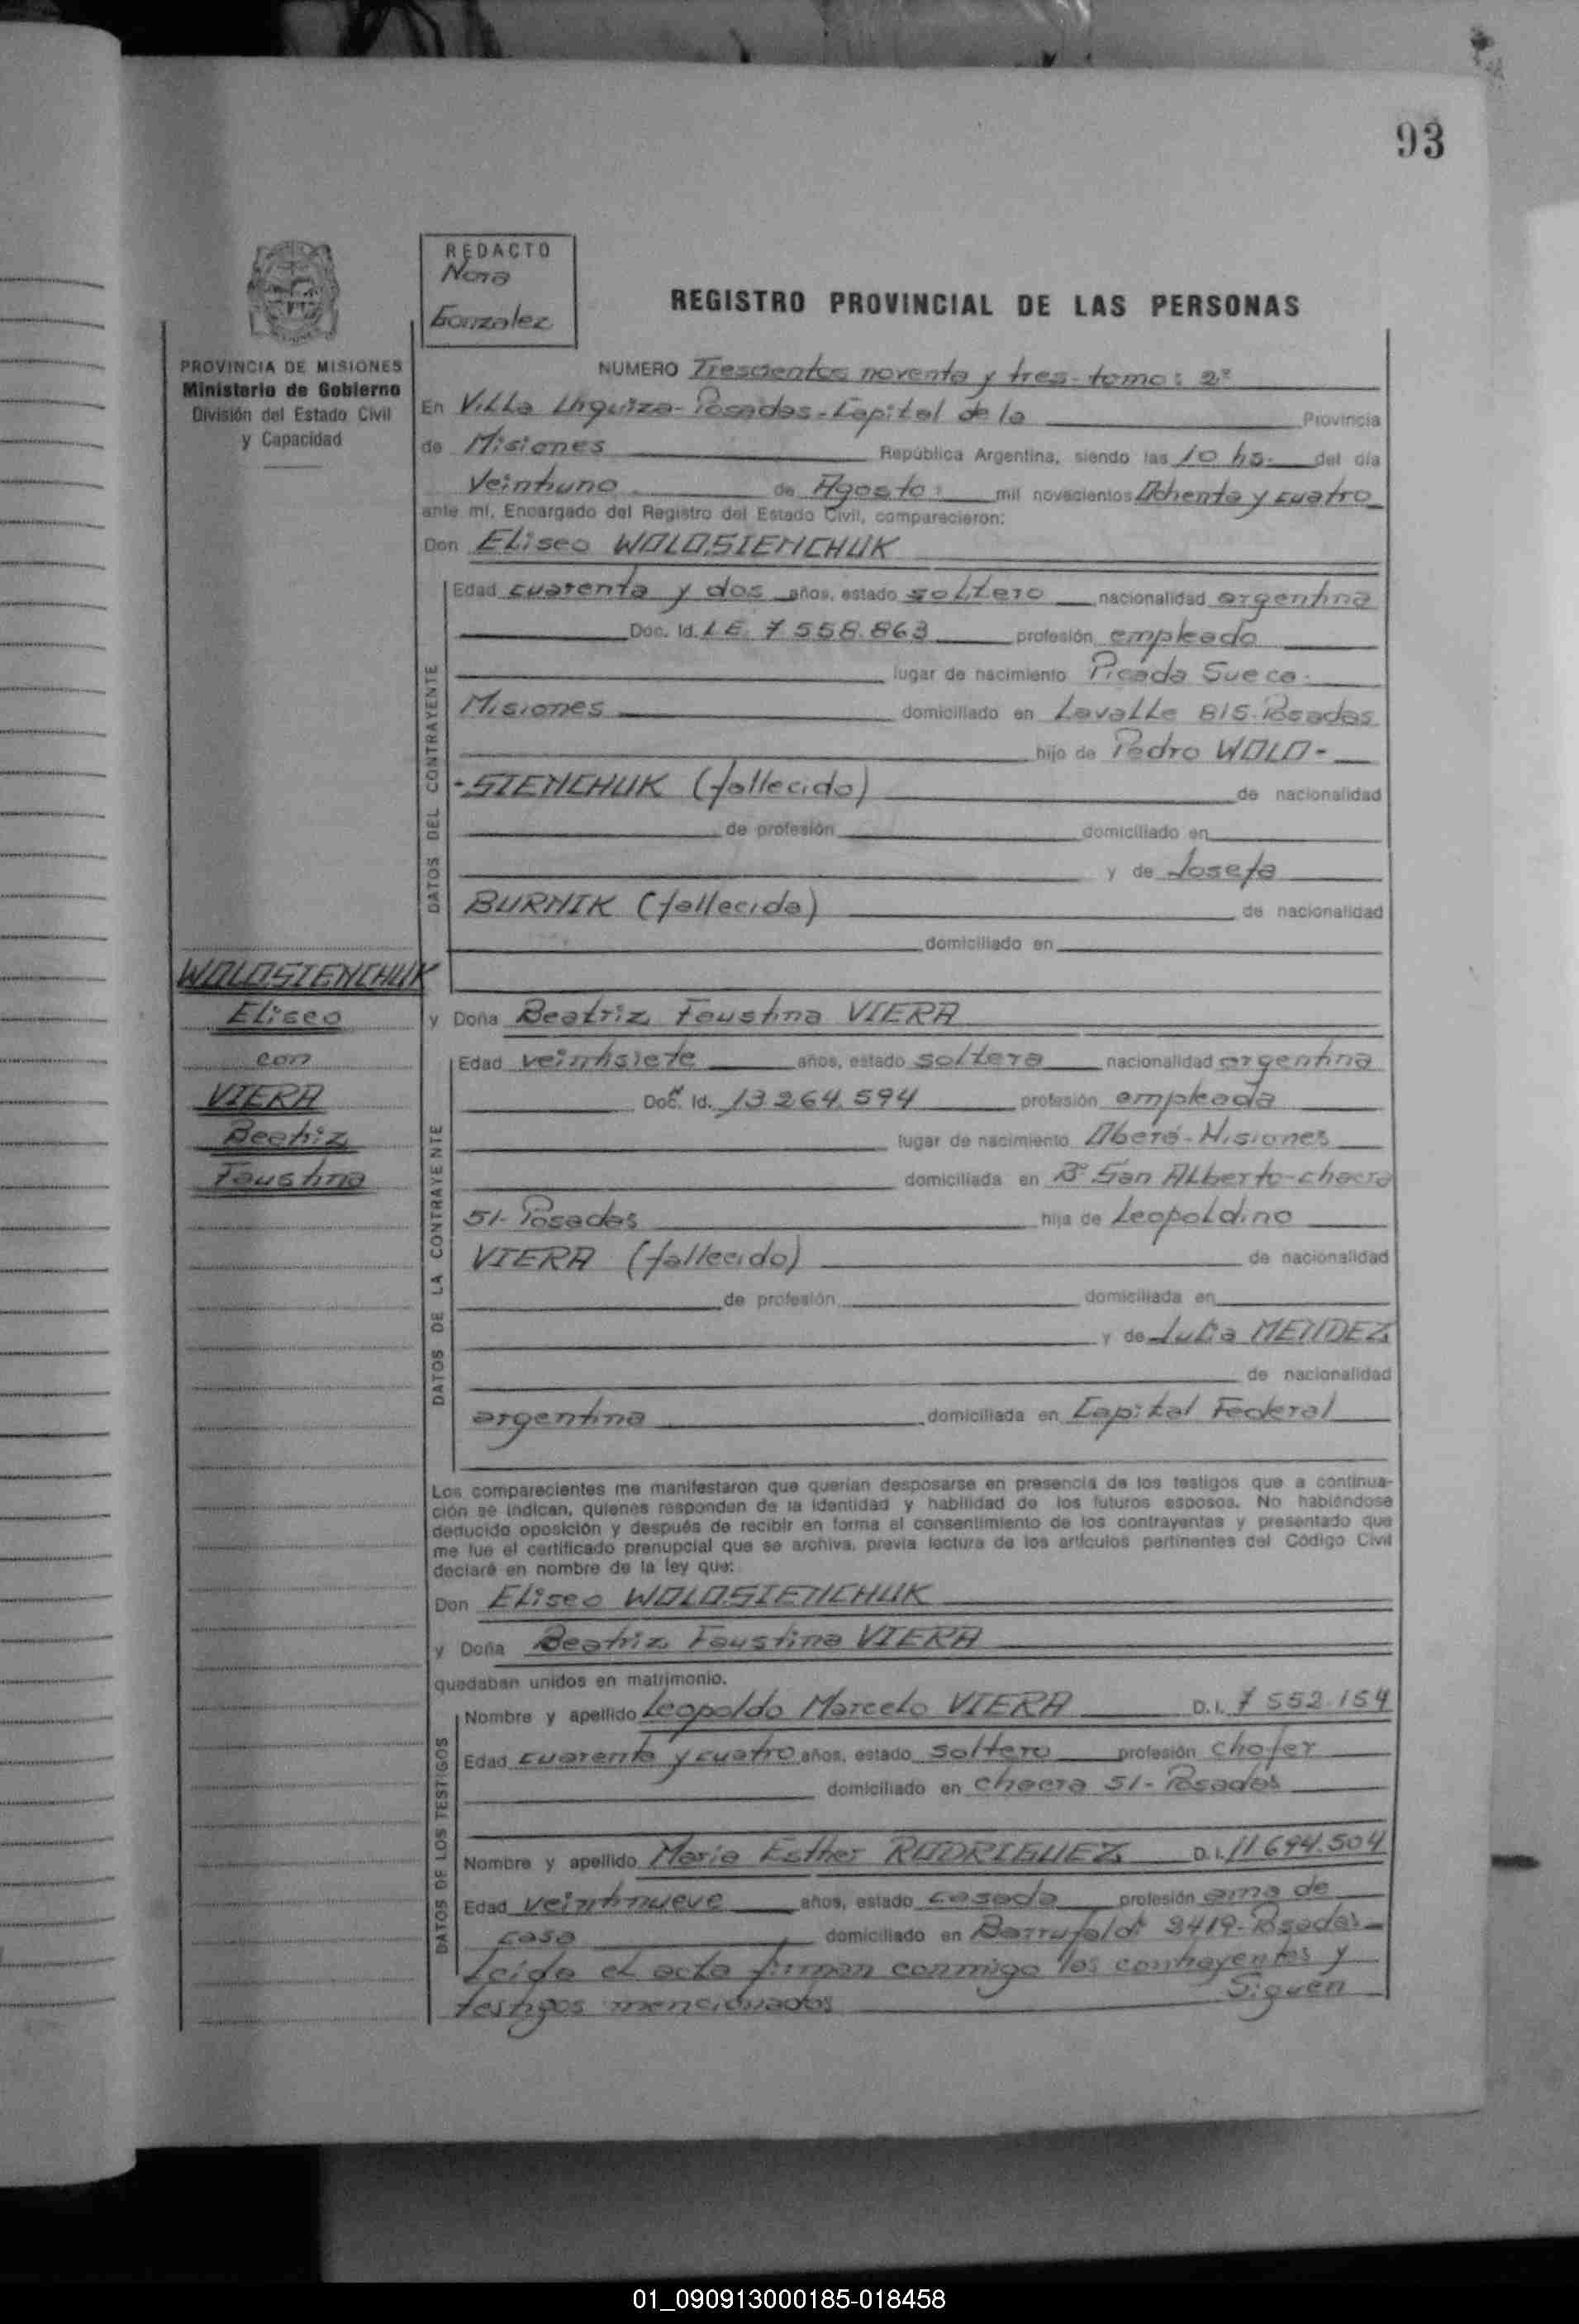 93
REDACTO
Nora
Gonzalez
REGISTRO PROVINCIAL DE LAS PERSONAS
PROVINCIA DE MISIONES
Ministerio de Gobierno
División del Estado Civil
y Capacidad
NUMERO Trescientos noventa y tres - tomo: 2º
En Villa Urquiza - Posadas - Capital de la Provincia
de Misiones República Argentina, siendo las 10 hs. del día
Veintiuno de Agosto mil novecientos Ochenta y cuatro
ante mí, Encargado del Registro del Estado Civil, comparecieron:
Don Eliseo WOLOSIENCHUK
DATOS DEL CONTRAYENTE
Edad cuarenta y dos años, estado soltero nacionalidad argentina
Doc. Id. L.E. 7 558.863 profesión empleado
lugar de nacimiento Picada Sueca.
Misiones domiciliado en Lavalle 815. Posadas
hijo de Pedro WOLO-
-SIENCHUK (fallecido) de nacionalidad
de profesión domiciliado en
y de Josefa
BURNIK (fallecida) de nacionalidad
domiciliado en
WOLOSIENCHUK
Eliseo
con
VIERA
Beatriz
Faustina
y Doña Beatriz Faustina VIERA
DATOS DE LA CONTRAYENTE
Edad veintisiete años, estado soltera nacionalidad argentina
Doc. Id. 13 264.594 profesión empleada
lugar de nacimiento Oberá - Misiones
domiciliada en Bº San Alberto - chacra
51 - Posadas hija de Leopoldino
VIERA (fallecido) de nacionalidad
de profesión domiciliada en
y de Julia MENDEZ
de nacionalidad
argentina domiciliada en Capital Federal
Los comparecientes me manifestaron que querían desposarse en presencia de los testigos que a continua-
ción se indican, quienes responden de la identidad y habilidad de los futuros esposos. No habiéndose
deducido oposición y después de recibir en forma el consentimiento de los contrayentes y presentado que
me fue el certificado prenupcial que se archiva, previa lectura de los artículos pertinentes del Código Civil
declaré en nombre de la ley que:
Don Eliseo WOLOSIENCHUK
y Doña Beatriz Faustina VIERA
quedaban unidos en matrimonio.
DATOS DE LOS TESTIGOS
Nombre y apellido Leopoldo Marcelo VIERA D.I. 7 552.154
Edad cuarenta y cuatro años, estado soltero profesión chofer
domiciliado en chacra 51 - Posadas
Nombre y apellido Maria Esther RODRIGUEZ D.I. 11 694.504
Edad veintinueve años, estado casada profesión ama de
casa domiciliado en Barrufaldi 3419 - Posadas
Leida el acta firman conmigo los contrayentes y
testigos mencionados Siguen
01_090913000185-018458